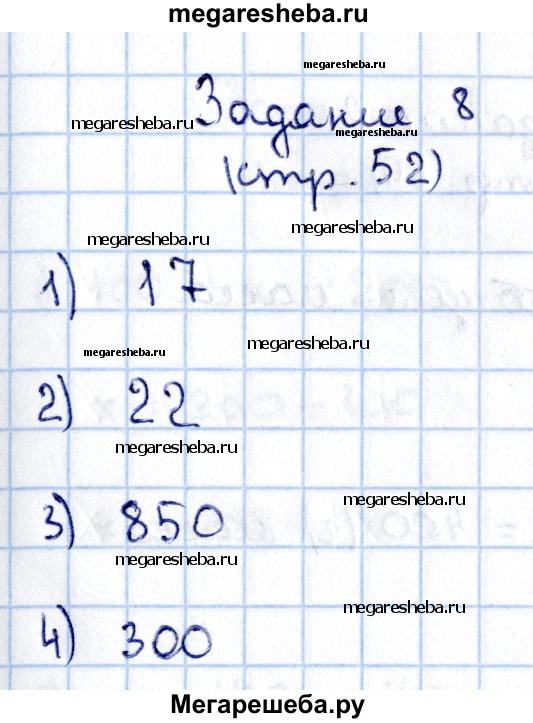 megaresheba.ru
megaresheba.ru
megaresheba.ru
Задание 8
megaresheba.ru
(стр. 52)
megaresheba.ru
megaresheba.ru
1) 17
megaresheba.ru
megaresheba.ru
2) 22
megaresheba.ru
megaresheba.ru
3) 850
megaresheba.ru
megaresheba.ru
4) 300
Мегарешеба.ру